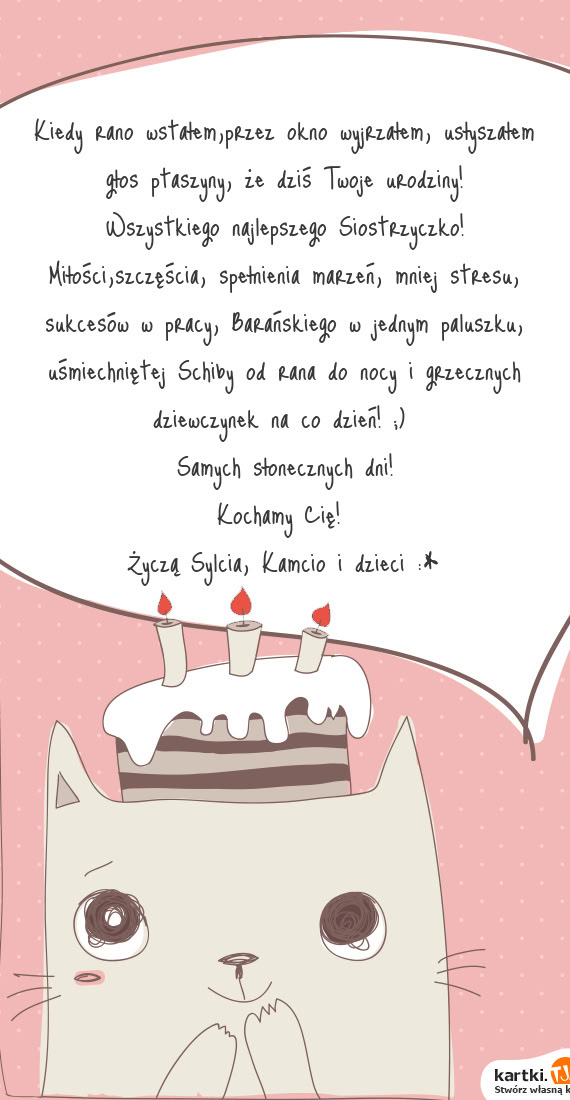 Kiedy rano wstałem,przez okno wyjrzałem, usłyszałem
głos ptaszyny, że dziś Twoje urodziny!
Wszystkiego najlepszego Siostrzyczko!
Miłości,szczęścia, spełnienia marzeń, mniej stresu,
sukcesów w pracy, Barańskiego w jednym paluszku,
uśmiechniętej Schiby od rana do nocy i grzecznych
dziewczynek na co dzień! ;)
Samych słonecznych dni!
Kochamy Cię!
Życzą Sylcia, Kamcio i dzieci :*
kartki.TJ
Stwórz własną k